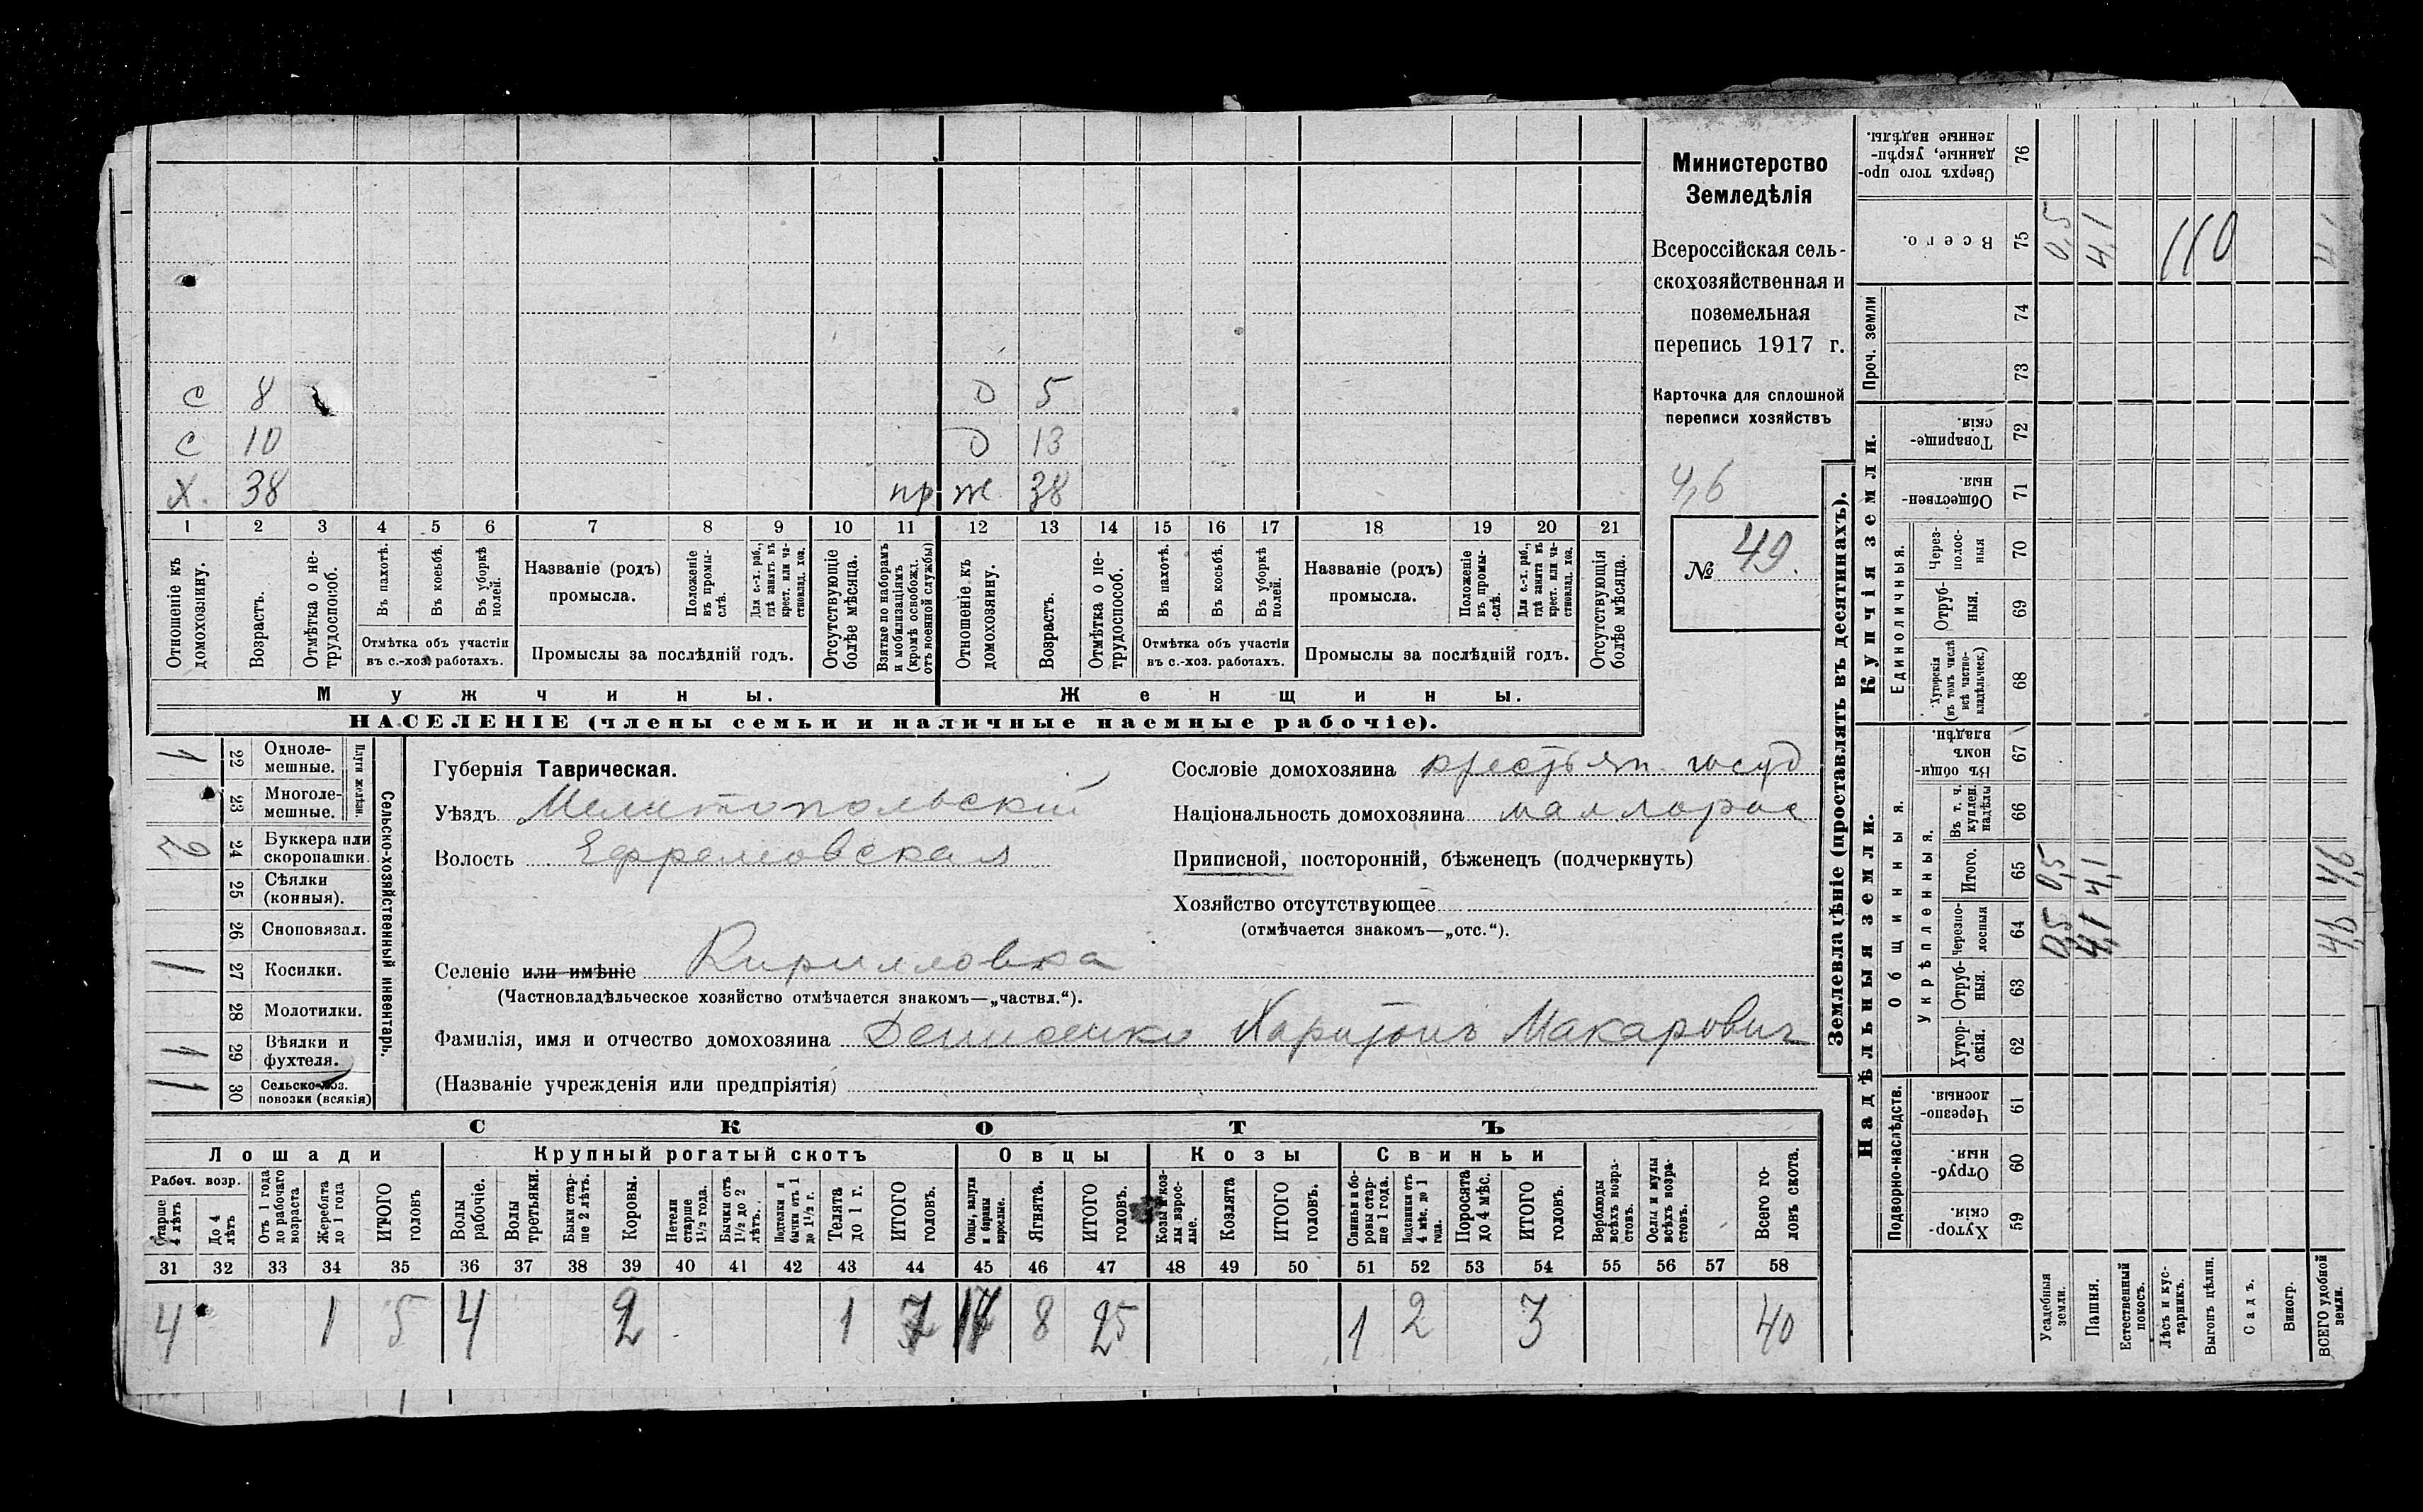 с 8 д 5
с 10 д 13
х. 38 пр ж. 38
1 2 3 4 5 6 7 8 9 10 11 12 13 14 15 16 17 18 19 20 21
Отношеніе къ домохозяину.
Возрастъ.
Отмѣтка о не-
трудоспособ.
Въ пахотѣ.
Въ косьбѣ.
Въ уборкѣ
полей.
Отмѣтка объ участіи
въ с.-хоз. работахъ.
Названіе (родъ)
промысла.
Положеніе
въ промы-
слѣ.
Для с.-х. раб.,
гдѣ занятъ въ
крест. или ча-
стновлад. хоз.
Промыслы за послѣдній годъ.
Отсутствующіе
болѣе мѣсяца.
Взятые по наборамъ
и мобилизаціямъ
(кромѣ освобожд.
отъ военной службы)
Отношеніе къ
домохозяину.
Возрастъ.
Отмѣтка о не-
трудоспособ.
Въ пахотѣ.
Въ косьбѣ.
Въ уборкѣ
полей.
Отмѣтка объ участіи
въ с.-хоз. работахъ.
Названіе (родъ)
промысла.
Положеніе
въ промы-
слѣ.
Для с.-х. раб.,
гдѣ занята въ
крест. или ча-
стновлад. хоз.
Промыслы за послѣдній годъ.
Отсутствующія
болѣе мѣсяца.
Мужчины.
Женщины.
НАСЕЛЕНІЕ (члены семьи и наличные наемные рабочіе).
Министерство
Земледѣлія
Всероссійская сель-
скохозяйственная и
поземельная
перепись 1917 г.
Карточка для сплошной
переписи хозяйствъ
4,6
№ 49.
1 22 Одноле-
мешные.
23 Многоле-
мешные.
Плуги желѣзн.
2 24 Буккера или
скоропашки.
25 Сѣялки
(конныя).
26 Сноповязал.
1 27 Косилки.
28 Молотилки.
1 29 Вѣялки и
фухтеля.
1 30 Сельско-хоз.
повозки (всякія)
Сельско-хозяйственный инвентарь.
Губернія Таврическая.
Уѣздъ Мелитопольскій
Волость Ефремовская
Селеніе или имѣніе Кирилловка
(Частновладѣльческое хозяйство отмѣчается знакомъ—„частвл.“).
Фамилія, имя и отчество домохозяина Денисенко Харитонъ Макарович
(Названіе учрежденія или предпріятія)
Сословіе домохозяина крестьян. госуд
Національность домохозяина маллорос
Приписной, посторонній, бѣженецъ (подчеркнуть)
Хозяйство отсутствующее
(отмѣчается знакомъ—„отс.“).
СКОТЪ
Лошади
Крупный рогатый скотъ
Овцы
Козы
Свиньи
Рабоч. возр.
Старше
4 лѣтъ
До 4
лѣтъ
Отъ 1 года
до рабочаго
возраста
Жеребята
до 1 года
ИТОГО
головъ
Волы
рабочіе.
Волы
третьяки.
Быки стар-
ше 2 лѣтъ.
Коровы.
Нетели
старше
1½ года.
Бычки отъ
1½ до 2
лѣтъ.
Подтелки и
бычки отъ 1
до 1½ г.
Телята
до 1 г.
ИТОГО
головъ.
Овцы, валухи
и бараны
взрослые.
Ягнята.
ИТОГО
головъ.
Козы и коз-
лы взрос-
лые.
Козлята
ИТОГО
головъ.
Свиньи и бо-
ровы стар-
ше 1 года.
Подсвинки отъ
4 мѣс. до 1
года.
Поросята
до 4 мѣс.
ИТОГО
головъ.
Верблюды
всѣхъ возра-
стовъ.
Ослы и мулы
всѣхъ возра-
стовъ.
Всего го-
ловъ скота.
31 32 33 34 35 36 37 38 39 40 41 42 43 44 45 46 47 48 49 50 51 52 53 54 55 56 57 58
4 1 5 4 2 1 7 17 8 25 1 2 3 40
Землевладѣніе (проставлять въ десятинахъ).
Сверхъ того про-
данные, укрѣп-
ленные надѣлы.
76
Всего.
75 0,5 4,1 110
Проч. земли
74
73
Купчія земли.
Товарище-
скія.
72
Обществен-
ныя.
71
Единоличныя.
Через-
полос-
ныя
70
Отруб-
ныя.
69
Хуторскія
(въ томъ числѣ
всѣ частно-
владѣльческ.)
68
Надѣльныя земли.
Общинныя.
Въ общи-
номъ
владѣн.
67
Укрѣпленныя.
Въ т. ч.
куплен.
надѣлы
66
Итого.
65 0,5 4,1 4,6
Черезпо-
лосныя
64 0,5 4,1 4,6
Отруб-
ныя.
63
Хутор-
скія.
62
Подворно-наслѣдств.
Черезпо-
лосныя.
61
Отруб-
ныя.
60
Хутор-
скія.
59
Усадебныя
земли.
Пашня.
Естественный
покосъ.
Лѣсъ и кус-
тарникъ.
Выгонъ цѣлин.
Садъ.
Виногр.
ВСЕГО удобной
земли.